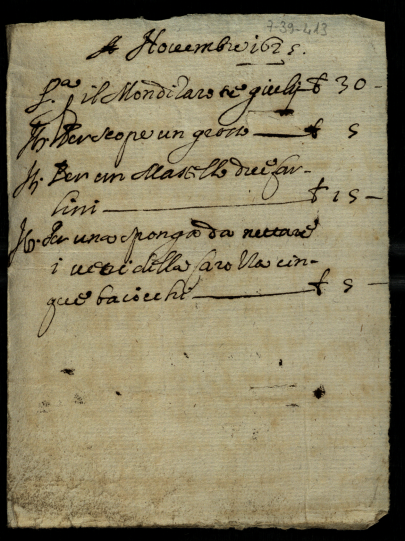 7-39-413
A Novembre 1625.
P.ª il Mondezaro tre giulij 30 -
It. Per scope un grosso 5
It. Per un Mastello due car-
lini 15 -
It. Per una sponga da nettare
i vetri della carozza cin-
que baiocchi 5 -